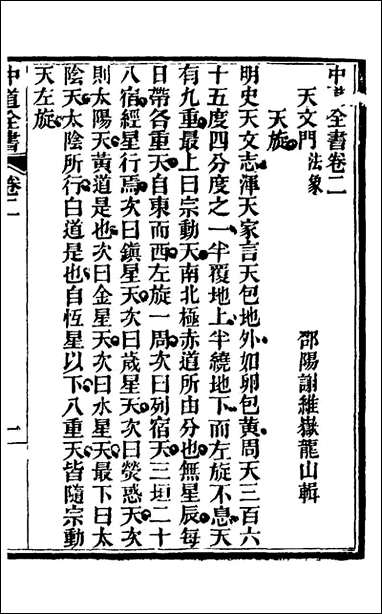 中道全書卷二
天文門法象
邵陽謝維嶽龍山輯
天旋
明史天文志渾天家言天包地外如卵包黃周天三百六
十五度四分度之一半覆地上半繞地下而左旋不息天
有九重最上曰宗動天南北極赤道所由分也無星辰每
日帶各重天自東而西左旋一周次曰列宿天三垣二十
八宿經星行焉次曰鎮星天次曰歲星天次曰熒惑天次
則太陽天黃道是也次曰金星天次曰水星天最下曰太
陰天太陰所行白道是也自恆星以下八重天皆隨宗動
天左旋
中道全書
卷二
一